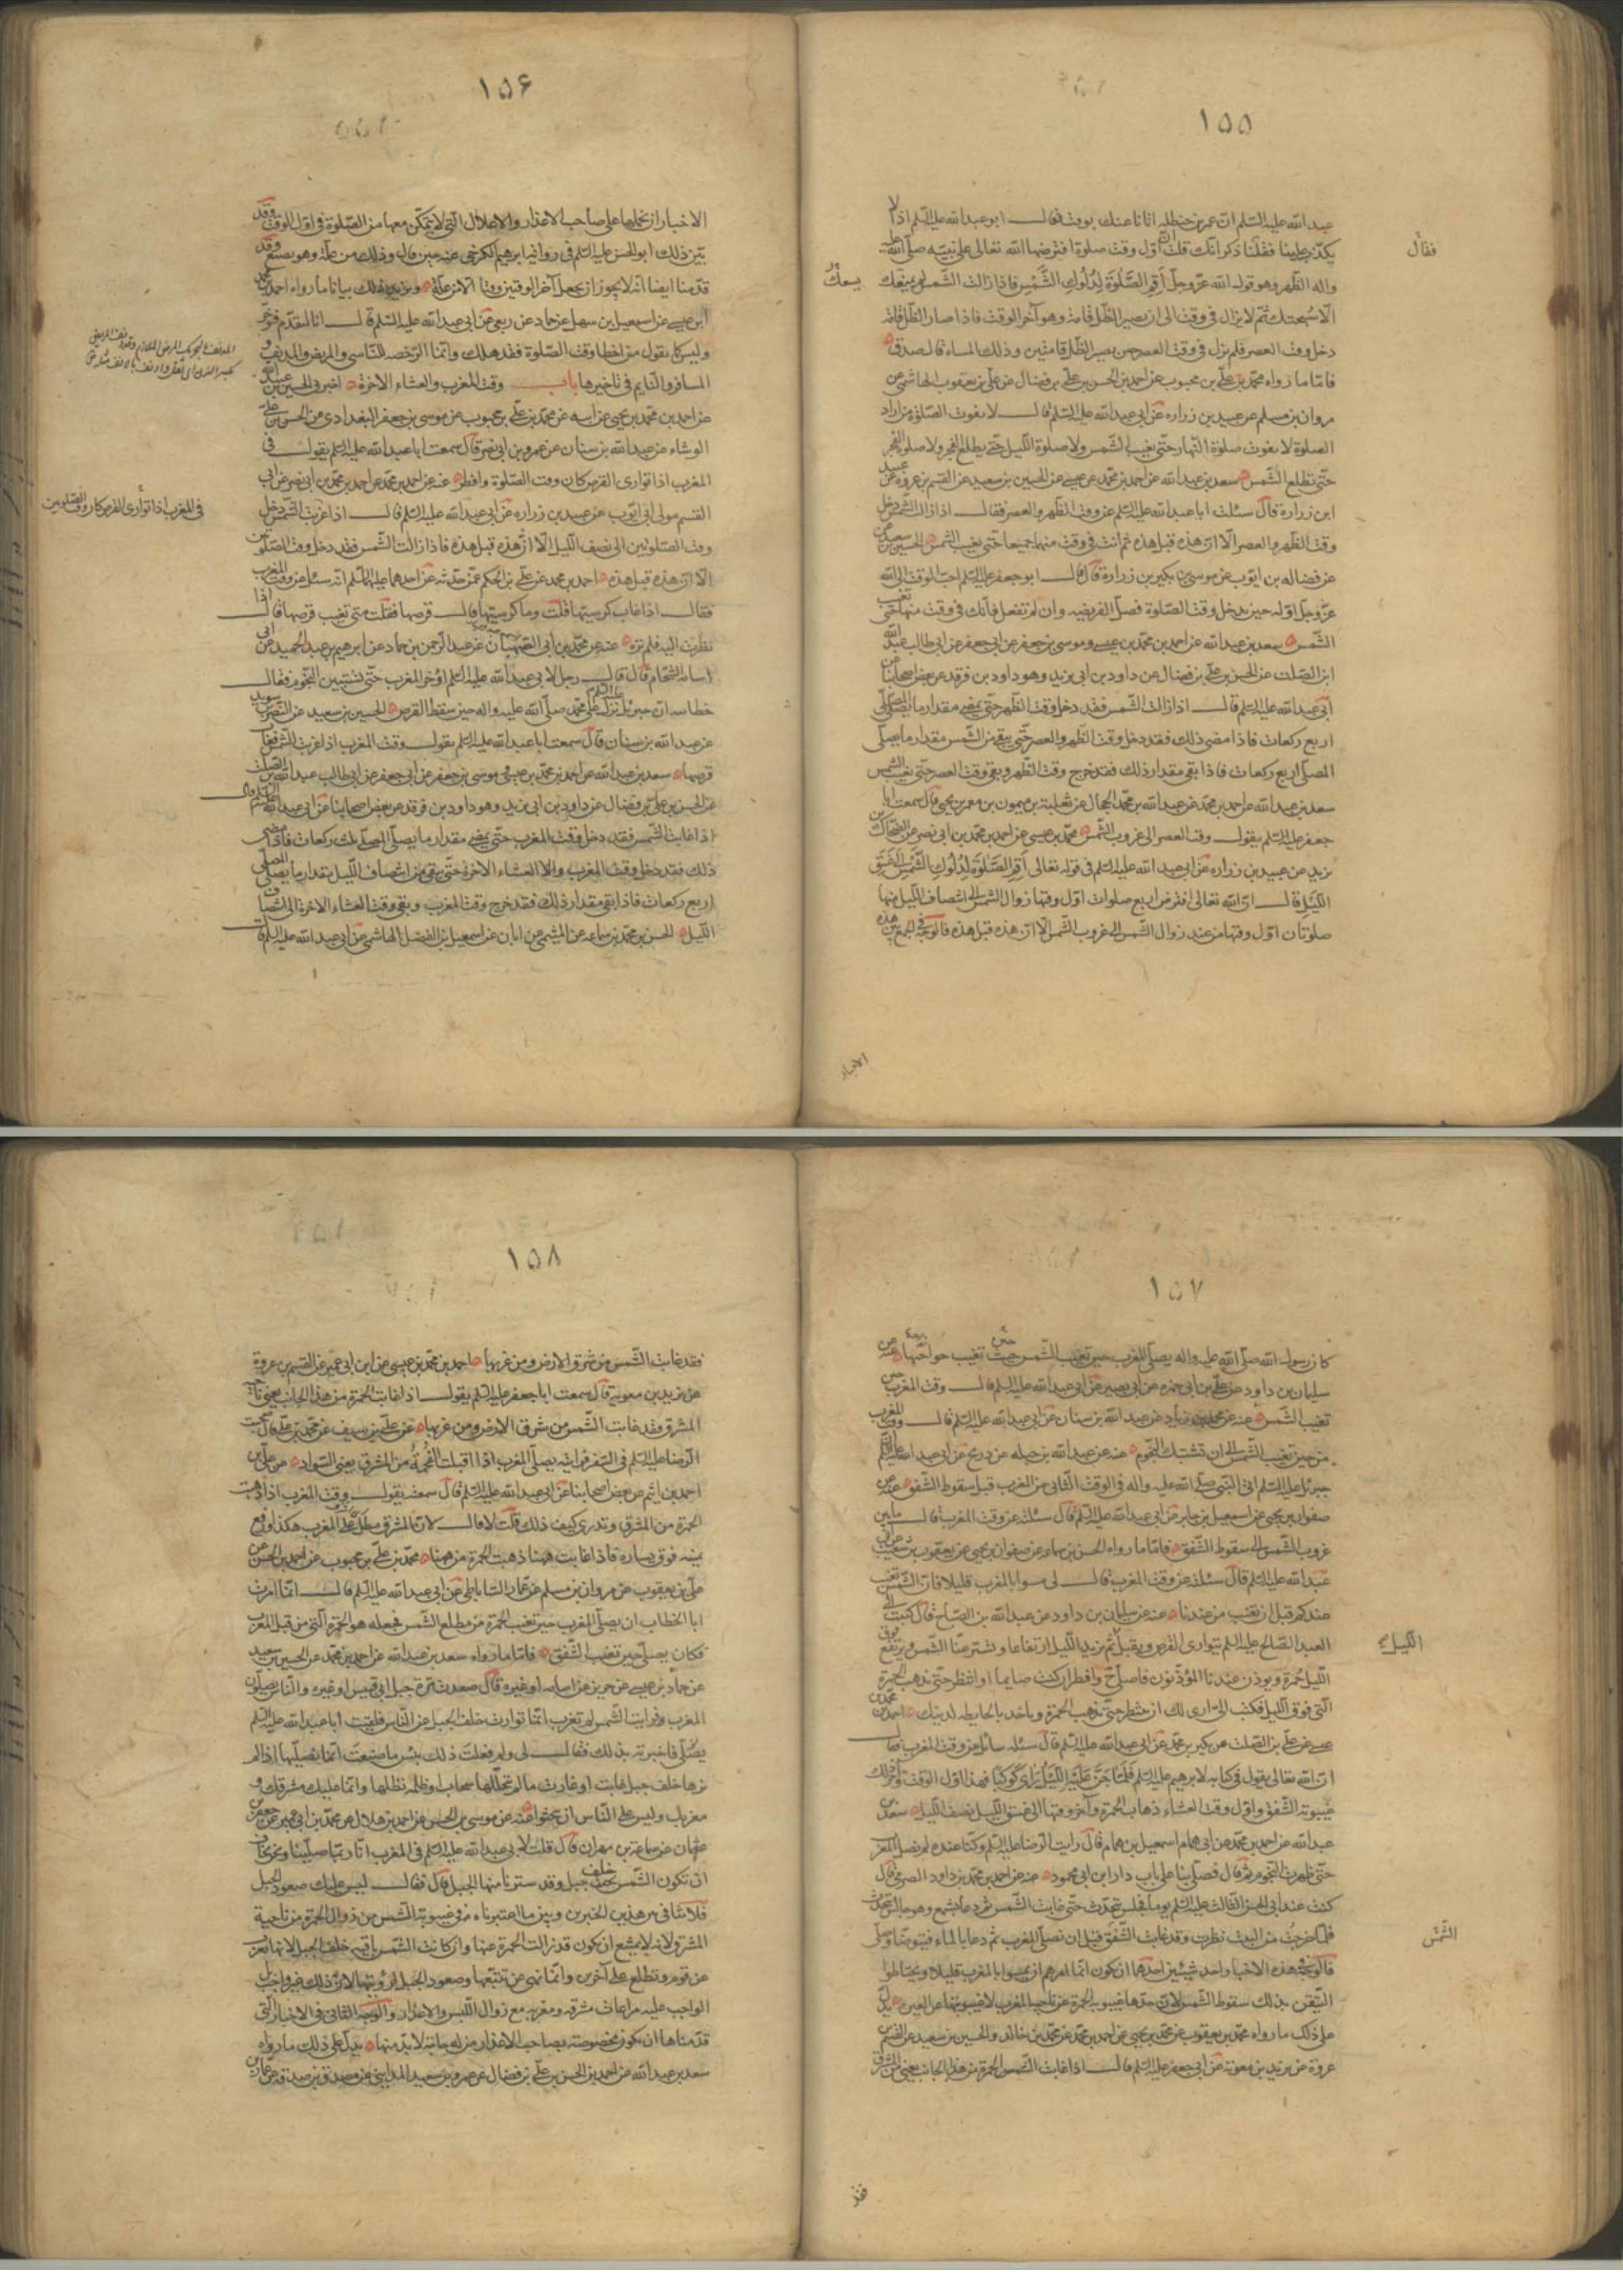 ١٥٥
عبد الله عليه السلم ان عمر بن حنظله اتانا عنك بوقت فقال ابو عبد الله عليه السلم اذا لا
يكذب علينا فقلنا ذكر انك قلت ان اول وقت صلوة افترضها الله تعالى على نبيه صلى الله عليه
فقال
واله الظهر وهو قول الله عز وجل أقم الصلوة لدلوك الشمس فاذا زالت الشمس لم يمنعك
يسعك
الا سبحتك ثم لا يزال في وقت الى ان يصير الظل قامة وهو آخر الوقت فاذا صار الظل قامة
دخل وقت العصر فلم يزل في وقت العصر حتى يصير الظل قامتين وذلك المساء قال صدق
فاما ما رواه محمد بن علي بن محبوب عن احمد بن الحسن بن علي بن فضال عن علي بن يعقوب الهاشمي عن
مروان بن مسلم عن عبيد بن زراره عن ابي عبد الله عليه السلم قال لا يفوت الصلوة من اراد
الصلوة لا يفوت صلوة النهار حتى تغيب الشمس ولا صلوة الليل حتى يطلع الفجر ولا صلوة الفجر
حتى تطلع الشمس سعد بن عبد الله عن احمد بن محمد بن عيسى عن الحسين بن سعيد عن القسم بن عروة عن عبيد
ابن زرارة قال سئلت ابا عبد الله عليه السلم عن وقت الظهر والعصر فقال اذا زالت الشمس دخل
وقت الظهر والعصر الا ان هذه قبل هذه ثم انت في وقت منهما جميعا حتى تغيب الشمس الحسين بن سعيد عن
عن فضاله بن ايوب عن موسى بن بكير بن زرارة قال قال ابو جعفر عليه السلم احب الوقت الى الله
عز وجل اوله حين يدخل وقت الصلوة فصل الفريضه وان لم تفعل فانك في وقت منهما حتى تغيب
الشمس سعد بن عبد الله عن احمد بن محمد بن عيسى وموسى بن جعفر عن ابي جعفر عن ابي طالب عبد الله
ابن الصلت عن الحسن بن علي بن فضال عن داود بن ابي يزيد وهو داود بن فرقد عن بعض اصحابنا عن
ابي عبد الله عليه السلم قال اذا زالت الشمس فقد دخل وقت الظهر حتى يمضي مقدار ما يصلي المصلي
اربع ركعات فاذا مضى ذلك فقد دخل وقت الظهر والعصر حتى يبقى من الشمس مقدار ما يصلي
المصلي اربع ركعات فاذا بقي مقدار ذلك فقد خرج وقت الظهر وبقي وقت العصر حتى تغيب الشمس
سعد بن عبد الله عن احمد بن محمد عن عبد الله بن محمد الحجال عن ثعلبة بن ميمون بن معمر بن يحيى قال سمعت ابا
جعفر عليه السلم يقول وقت العصر الى غروب الشمس محمد بن عيسى عن احمد بن محمد بن ابي نصر عن الضحاك بن
يزيد عن عبيد بن زراره عن ابي عبد الله عليه السلم في قوله تعالى أقم الصلوة لدلوك الشمس الى غسق
الليل قال ان الله تعالى افترض اربع صلوات اول وقتها زوال الشمس الى انتصاف الليل منها
صلوتان اول وقتهما من عند زوال الشمس الى غروب الشمس الا ان هذه قبل هذه فالوجه في الجمع بين هذه
الاخبار
١٥۶
الاخبار ان نحملها على صاحب الاعذار والاعلال التي لا يتمكن معها من الصلوة في اول الوقت وقد
بين ذلك ابو الحسن عليه السلم في رواية ابرهيم الكرخي عنه حين قال وذلك من علة وهو يصنع وقد
قدمنا ايضا انه لا يجوز ان يجعل آخر الوقتين وقتا الا من علة ويزيد ذلك بيانا ما رواه احمد بن محمد
ابن عيسى عن اسمعيل بن سهل عن حماد عن ربعي عن ابي عبد الله عليه السلم قال انا لنقدم ونؤخر
وليس كما يقول من اخطا وقت الصلوة فقد هلك وانما الرخصه للناسي والمريض والمدنف و
المسافر والنايم في تاخيرها باب وقت المغرب والعشاء الاخرة اخبرني الحسين بن عبيد الله
عن احمد بن محمد بن يحيى عن ابيه عن محمد بن علي بن محبوب عن موسى بن جعفر البغدادي عن الحسن بن علي
الوشاء عن عبد الله بن سنان عن عمرو بن ابي نصر قال سمعت ابا عبد الله عليه السلم يقول في
المغرب اذا توارى القرص كان وقت الصلوة وافطر عنه عن احمد بن محمد عن احمد بن محمد بن ابي نصر عن ابي
القسم مولى ابي ايوب عن عبيد بن زراره عن ابي عبد الله عليه السلم قال اذا غربت الشمس دخل
وقت الصلوتين الى نصف الليل الا ان هذه قبل هذه فاذا زالت الشمس فقد دخل وقت الصلوتين
الا ان هذه قبل هذه احمد بن محمد عن علي بن الحكم عمن حدثه عن احدهما عليهما السلم انه سئل عن وقت المغرب
فقال اذا غاب كرسيها قلت وما كرسيها قال قرصها فقلت متى تغيب قرصها قال اذا
نظرت اليه فلم تره عنه عن محمد بن ابي الصهبان عن عبد الرحمن بن حماد عن ابرهيم بن عبد الحميد عن ابي
اسامه الشحام قال قال رجل لابي عبد الله عليه السلم اؤخر المغرب حتى تستبين النجوم فقال
خطابيه ان جبرئل نزل على محمد صلى الله عليه واله حين سقط القرص الحسين بن سعيد عن النضر بن سويد
عن عبد الله بن سنان قال سمعت ابا عبد الله عليه السلم يقول وقت المغرب اذا غربت الشمس فغاب
قرصها سعد بن عبد الله عن احمد بن محمد بن عيسى وموسى بن جعفر عن ابي جعفر عن ابي طالب عبد الله بن الصلت
عن الحسن بن علي بن فضال عن داود بن ابي يزيد وهو داود بن فرقد عن بعض اصحابنا عن ابي عبد الله عليه السلم قال
اذا غابت الشمس فقد دخل وقت المغرب حتى يمضي مقدار ما يصلي المصلي ثلث ركعات فاذا مضى
ذلك فقد دخل وقت المغرب والعشاء الاخرة حتى يبقى من انتصاف الليل مقدار ما يصلي المصلي
اربع ركعات فاذا بقي مقدار ذلك فقد خرج وقت المغرب وبقي وقت العشاء الاخرة الى انتصاف
الليل الحسن بن محمد بن سماعه عن الميثمي عن ابان عن اسمعيل بن الفضل الهاشمي عن ابي عبد الله عليه السلم قال
في المغرب اذا توارى القرص كان وقت الصلوتين
١٥٧
كان رسول الله صلى الله عليه واله يصلي المغرب حين تغيب الشمس حيث تغيب حواجبها عنه عن
سليمان بن داود عن علي بن ابي حمزه عن ابي بصير عن ابي عبد الله عليه السلم قال وقت المغرب حين
تغيب الشمس عنه عن محمد بن زياد عن عبد الله بن سنان عن ابي عبد الله عليه السلم قال وقت المغرب
من حين تغيب الشمس الى ان تشتبك النجوم عنه عن عبد الله بن جبله عن ذريح عن ابي عبد الله عليه السلم ان
جبرئل عليه السلم اتى النبي صلى الله عليه واله في الوقت الثاني من المغرب قبل سقوط الشفق عنه عن
صفوان بن يحيى عن اسمعيل بن جابر عن ابي عبد الله عليه السلم قال سئلته عن وقت المغرب قال ما بين
غروب الشمس الى سقوط الشفق فاما ما رواه الحسن بن سماعه عن صفوان بن يحيى عن يعقوب بن شعيب عن ابي
عبد الله عليه السلم قال سئلته عن وقت المغرب قال لي مسوا بالمغرب قليلا فان الشمس تغيب
عندكم قبل ان تغيب من عندنا عنه عن سليمان بن داود عن عبد الله بن الصباح قال كتبت الى
العبد الصالح عليه السلم يتوارى القرص ويقبل ثم يزيد الليل ارتفاعا وتستر عنا الشمس ويرتفع فوق
الليل
الليل حمرة ويوذن عندنا المؤذنون فاصلي ح وافطر ان كنت صايما او انتظر حتى تذهب الحمرة
التي فوق الليل فكتب الي ارى لك ان تنتظر حتى تذهب الحمرة وتاخذ بالحايطه لدينك احمد بن محمد بن
عيسى عن علي بن الصلت عن بكر بن محمد عن ابي عبد الله عليه السلم قال سئله سائل عن وقت المغرب فقال
ان الله تعالى يقول في كتابه لابرهيم عليه السلم فلما جن عليه الليل رأى كوكبا فهذا اول الوقت وآخر ذلك
غيبوبة الشفق واول وقت العشاء ذهاب الحمرة وآخر وقتها الى غسق الليل نصف الليل سعد بن
عبد الله عن احمد بن محمد عن ابي همام اسمعيل بن همام قال رايت الرضا عليه السلم وكنا عنده لم يصل المغرب
حتى ظهرت النجوم ثم قال فصلى بنا على باب دار ابن ابي محمود عنه عن احمد بن محمد بن داود الصرمي قال
كنت عند ابي الحسن الثالث عليه السلم يوما فجلس يتحدث حتى غابت الشمس ثم دعا بشمع وهو جالس يتحدث
فلما خرجت من البيت نظرت وقد غابت الشفق قبل ان يصلي المغرب ثم دعا بالماء فتوضا وصلى
الشمس
فالوجه في هذه الاخبار احد شيئين احدهما ان يكون انما امرهم ان يمسوا بالمغرب قليلا ويحتاطوا
التيقن بذلك سقوط الشمس لان حدها غيبوبة الحمرة عن ناحية المغرب لا غيبوبتها عن العين يدل
على ذلك ما رواه محمد بن يعقوب عن محمد بن يحيى عن احمد بن محمد عن محمد بن خالد والحسين بن سعيد عن القسم بن
عروة عن بريد بن معوية عن ابي جعفر عليه السلم قال اذا غابت الحمرة من هذا الجانب يعني من المشرق
١٥٨
فقد غابت الشمس من شرق الارض ومن غربها احمد بن محمد بن عيسى عن ابن ابي عمير عن القسم بن عروة
عن بريد بن معوية قال سمعت ابا جعفر عليه السلم يقول اذا غابت الحمرة من هذا الجانب يعني ناحية
المشرق فقد غابت الشمس من شرق الارض ومن غربها عن علي بن سيف عن محمد بن علي قال صحبت
الرضا عليه السلم في السفر فرايته يصلي المغرب اذا اقبلت الفحمة من المشرق يعني السواد عن علي بن
احمد بن اشيم عن بعض اصحابنا عن ابي عبد الله عليه السلم قال سمعته يقول وقت المغرب اذا ذهبت
الحمرة من المشرق وتدري كيف ذلك قلت لا قال لان المشرق مطل على المغرب هكذا ورفع
يمينه فوق يساره فاذا غابت ههنا ذهبت الحمرة من ههنا محمد بن علي بن محبوب عن احمد بن الحسن عن
علي بن يعقوب عن مروان بن مسلم عن عمار الساباطي عن ابي عبد الله عليه السلم قال انما امرت
ابا الخطاب ان يصلي المغرب حين تغيب الحمرة من مطلع الشمس فجعله هو الحمرة التي من قبل المغرب
فكان يصلي حين تغيب الشفق فاما ما رواه سعد بن عبد الله عن احمد بن محمد عن الحسين بن سعيد
عن حماد بن عيسى عن حريز عن ابي اسامه او غيره قال صعدت مرة جبل ابي قبيس او غيره والناس يصلون
المغرب فرايت الشمس لم تغرب انما توارت خلف الجبل عن الناس فلقيت ابا عبد الله عليه السلم
يصلي فاخبرته بذلك فقال لي ولم فعلت ذلك بئس ما صنعت انما تصليها اذا لم
ترها خلف جبل غابت او غارت ما لم تجللها سحاب او ظلمه تظلها وانما عليك مشرقك و
مغربك وليس على الناس ان يبحثوا عنه عن موسى بن الحسن عن احمد بن هلال عن محمد بن ابي عمير عن جعفر بن
عثمان عن سماعة بن مهران قال قلت لابي عبد الله عليه السلم في المغرب انا ربما صلينا ونحن نخاف
ان تكون الشمس خلف جبل وقد سترنا منها الجبل قال فقال ليس عليك صعود الجبل
فلا تنافي بين هذين الخبرين وبين ما اعتبرناه في غيبوبة الشمس من زوال الحمرة من ناحية
المشرق لانه لا يمتنع ان يكون قد زالت الحمرة عنها وان كانت الشمس باقيه خلف الجبل لانها تغرب
عن قوم وتطلع على آخرين وانما نهى عن تتبعها وصعود الجبل لرؤيتها لان ذلك غير واجب بل
الواجب عليه مراعات مشرقه ومغربه مع زوال اللبس والاعذار والوجه الثاني في الاخبار التي
قدمناها ان يكون مخصوصة بصاحب الاعذار ومن له حاجة لا بد منها يدل على ذلك ما رواه
سعد بن عبد الله عن احمد بن الحسن بن علي بن فضال عن عمرو بن سعيد المدايني عن مصدق بن صدقة عن عمار بن